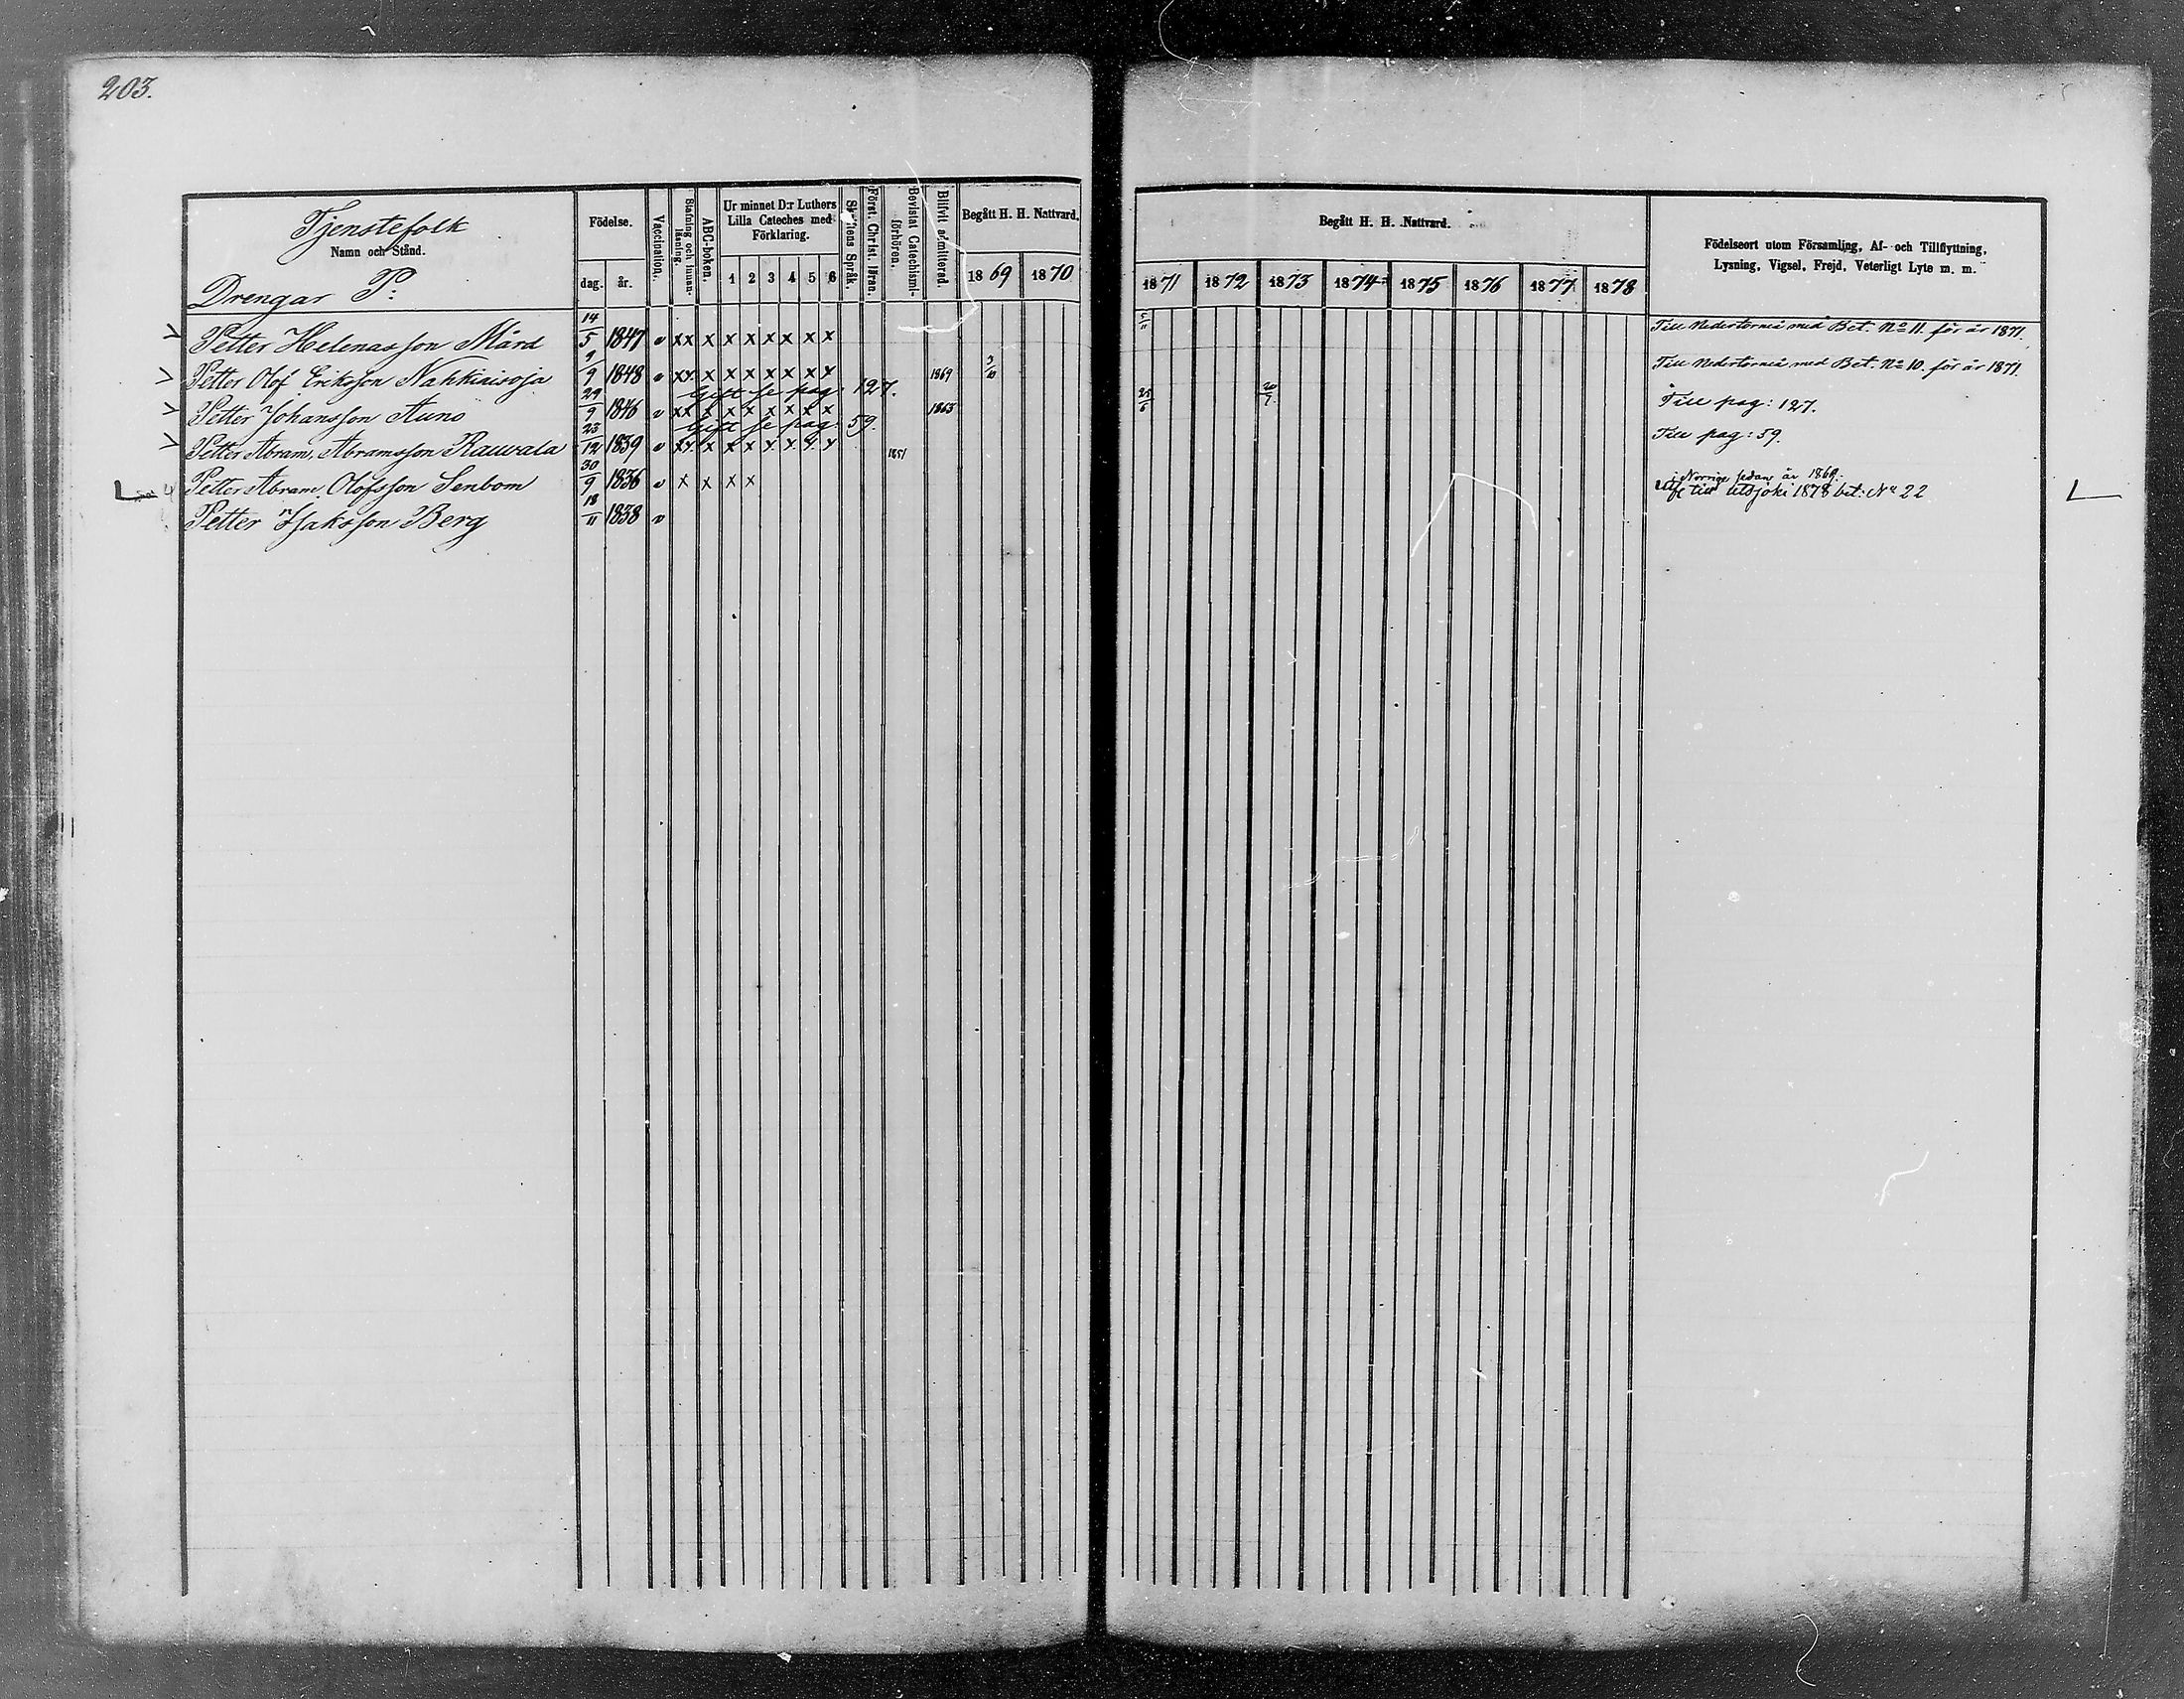 203.
Tjenstefolk
Namn och Stånd.
Drengar P:
Födelse.
dag. år.
Vaccination.
Stafning och innanläsning.
ABC-boken.
Ur minnet D:r Luthers Lilla Cateches med Förklaring.
1 2 3 4 5 6
Skriftens Språk.
Först. Christ. läran.
Bevistat Catechismiförhören.
Blifvit admitterad.
Begått H. H. Nattvard.
1869 1870
Begått H. H. Nattvard.
1871 1872 1873 1874 1875 1876 1877 1878
Födelseort utom Församling, Af- och Tillflyttning,
Lysning, Vigsel, Frejd, Veterligt Lyte m. m.
Petter Helenasson Mård 14/5 1847 v xx x x x x x x x Till Nedertorneå med Bet. No 11. för år 1871.
Petter Olof Eriksson Nahkiaisoja 9/9 1848 v xx x x x x x x x 1869 3/10 Till Nedertorneå med Bet. No 10. för år 1871.
Gift se pag: 127.
Petter Johansson Auno 29/9 1846 v xx x x x x x x x 1863 25/6 20/7 Till pag: 127.
Gift se pag: 59.
Petter Abram Abramsson Rauvala 23/12 1839 v xx x x x x x x x 1851 Till pag: 59.
Petter Abram Olofsson Senbom 30/9 1836 v x x x x i Norrige sedan år 1869.
till Utsjoki 1878 bet: No 22
Petter Isaksson Berg 18/11 1838 v